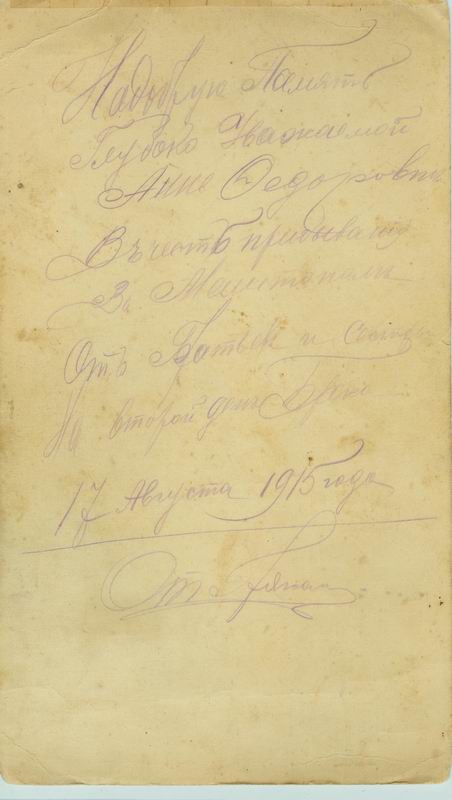 На добрую Память
Глубоко Уважаемой
Анне Федоровны
Въ честь прибывания
Въ Мелитополи
Отъ Батьки и
На второй день Брака
17 Августа 1915 года
От